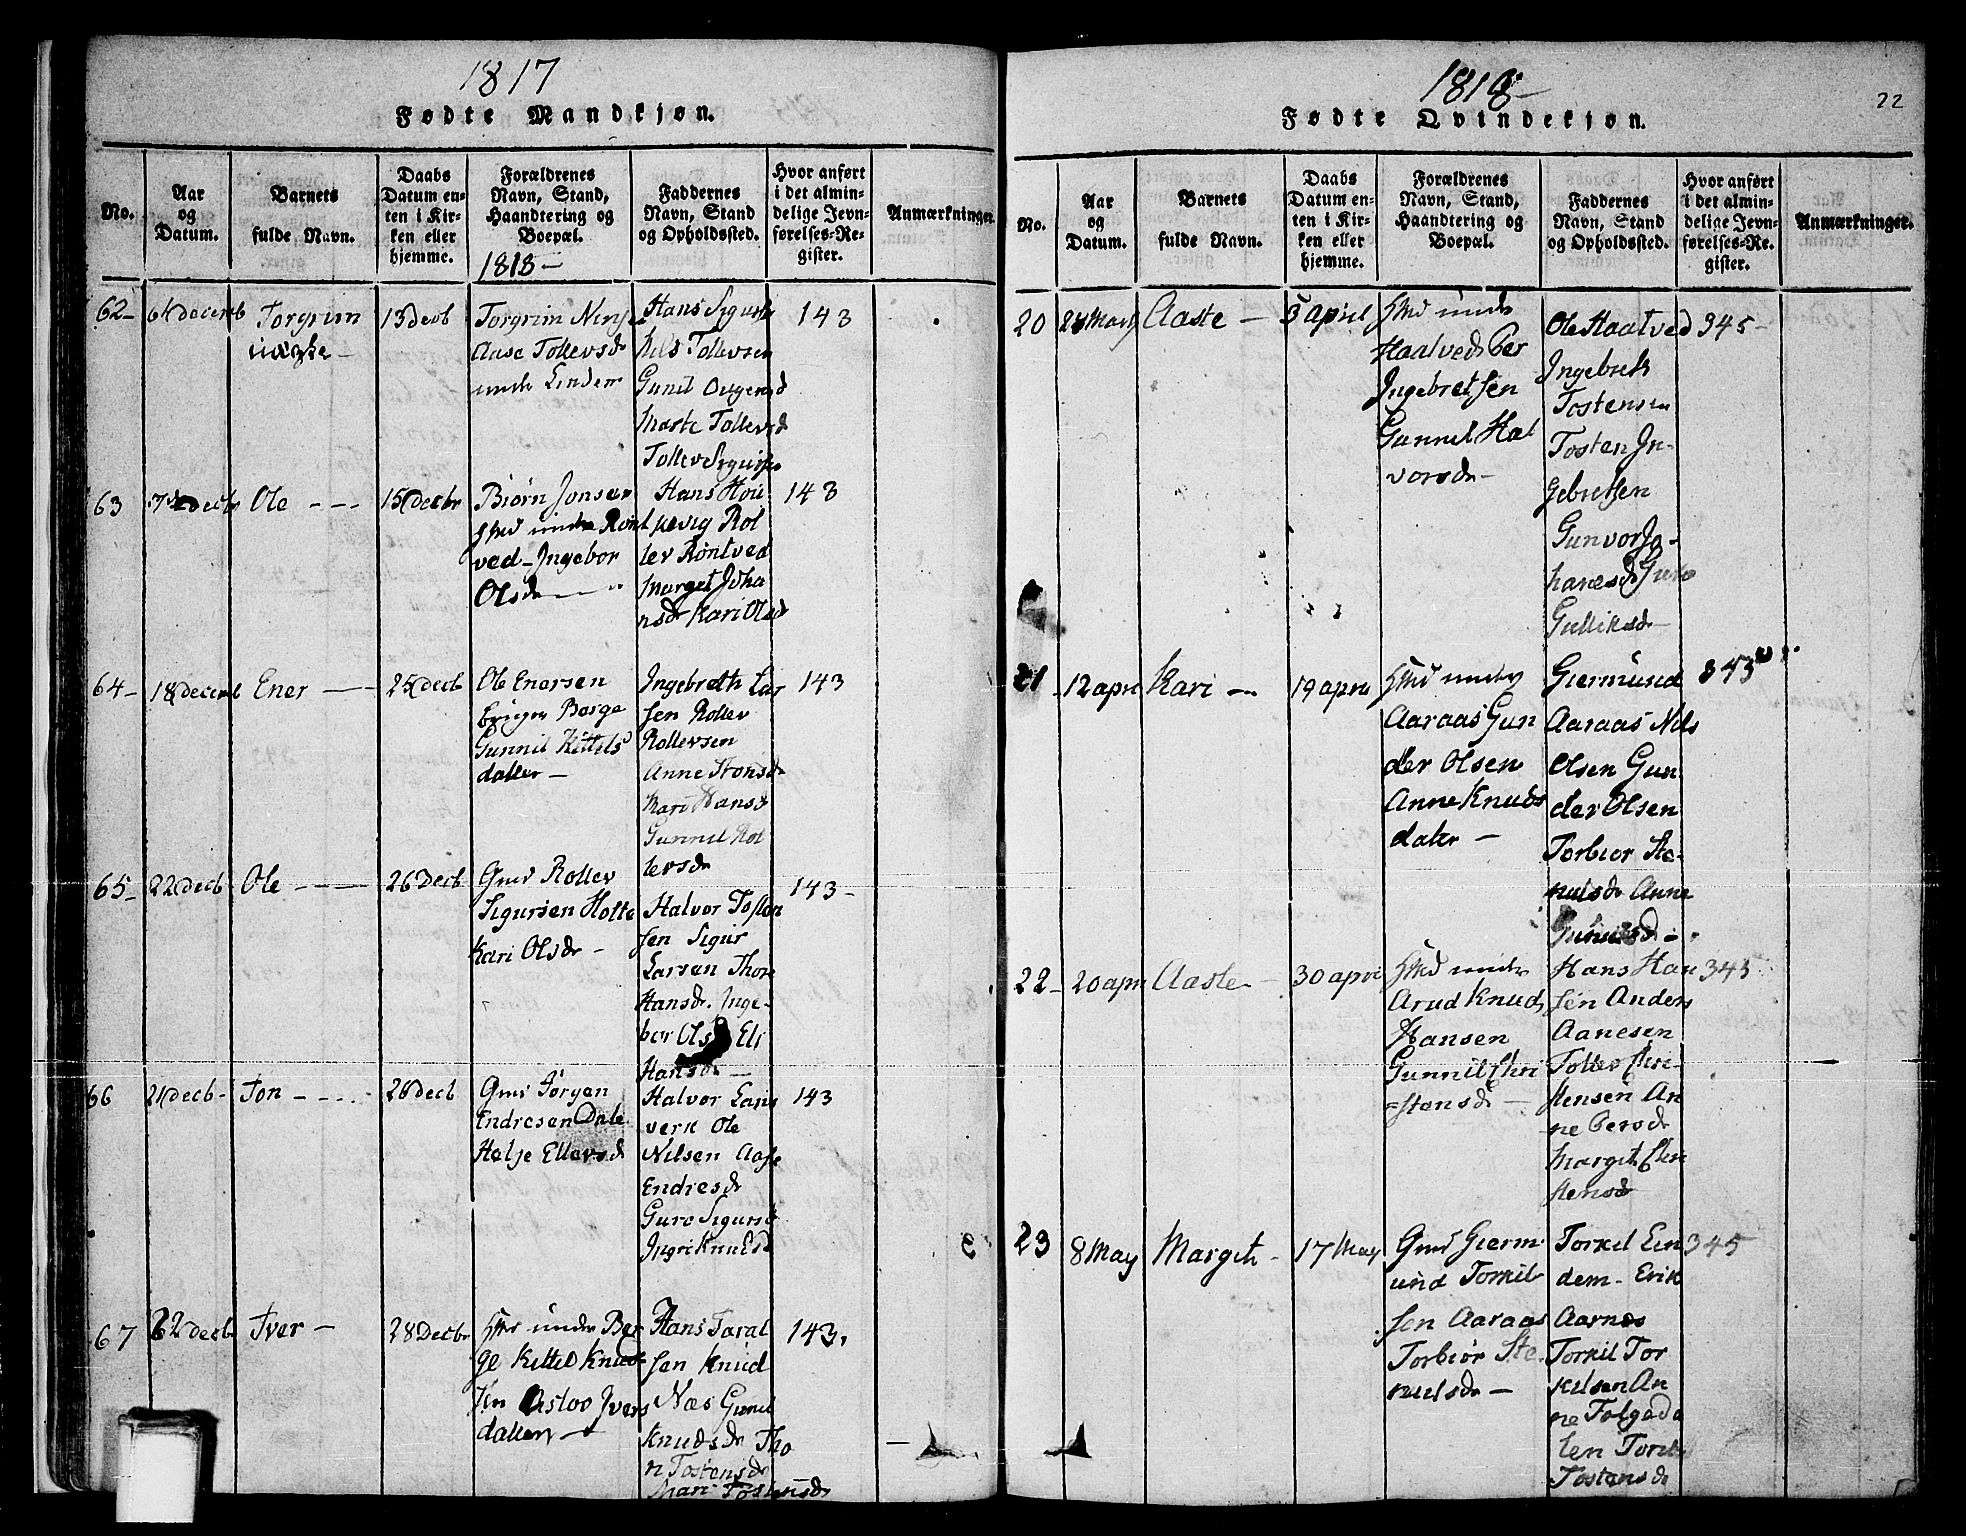 1817
Fødte Mandkjøn.
No.
Aar
og
Datum.
Barnets
fulde Navn.
Daabs
Datum en-
ten i Kir-
ken eller
hjemme.
Forældrenes
Navn, Stand,
Haandtering og
Boepæl.
1818 -
Faddernes
Navn, Stand
og Opholdssted.
Hvor anført
i det almin-
delige Jevn-
førelses-Re-
gister.
Anmærkninger.
62-
decemb
Torgrim
uægte -
13 decb
Torgrim
Aase Tollevsdr
under Linden
Hans Sigurs
Nils Tollevsen
Gunil
Marte Tollevsd
Tollev Sigurs
143
63
7de decb
Ole - - -
15 decbr
Biørn Jonsen
under Rønt
ved - Ingebor
Olsdr - - "
Hans Høi
Rol
lev Røntved
Marget Joha
nsdr Kari Olsd
143
64-
18 decemb
Ener -
25 decb
Ole Enersen
Borge
Gunnil Kittels
datter -
Ingebreth Lar
sen Rollev
Rollevsen
Anne
Kari Hansd
Gunnil Rol
levsdr
143
65-
22 decb
Ole - - -
26 Decb
Gmd Rollev
Sigursen Holte
Kari Olsdr -
Halvor Tosten
sen Sigur
Larsen Thore
Hansdr. Inge-
bor Olsd Eli
Hansdr -
143 -
66
21 Decb -
Jon - - -
26 Decb
Gmd Jørgen
Endresen Dale
Helje Ellevsd
Halvor Lans
verk Ole
Nilsen Aase
Endresdr
Guro Sigursd
Ingri Knudsd
143
67
22 decb
Iver -
28 Decbr
under Ber
ge Kittel Knud
sen Aslov Ivers
datter -
Hans Taral
sen Knud
Næs Gunil
Knudsdr Tho
n Tostensdr
Mari Tostensdr
143,
1818 -
22
Fødte Qvindekjøn.
No.
Aar
og
Datum.
Barnets
fulde Navn.
Daabs
Datum en-
ten i Kir-
ken eller
hjemme.
Forældrenes
Navn, Stand,
Haandtering og
Boepæl.
Faddernes
Navn, Stand
og Opholdssted.
Hvor anført
i det almin-
delige Jevn-
førelses-Re-
gister.
Anmærkninger.
20
Aaste -
5 april
under
Haatved Per
Ingebretsen
Gunnil Hal
vorsdr -
Ole Haatved
Ingebreth
Tostensen
Tosten In-
gebretsen
Gunvor Jo-
hanesdr Guro
Gulliksdr -
345 -
21
12 apri
Kari -
19 apri
under
Aaraas Gun
der Olsen
Anne Knuds
dater -
Giermund
Aaraas Nils
Olsen Gun
der Olsen
Torbior Ste-
nulsdr Anne
345
22 -
20 apri
Aaste -
30 apri
under
Arud Knud
Hansen
Gunnil Chri
=stensdr -
Hans Han
sen Anders
Aanesen
Tollev Chri-
stensen An
ne Persdr
Margit Chri
stensdr
345
23
8 May
Margit -
17 May
Gmd Gierm
und Torkil
sen Aaraas
Torbiør Ste
nulsdr -
Torkil Lin
dem - Erik
Aarnes
Torkil Tor
kilsen An
ne Folgeda
len Torber
Tostensdr
345